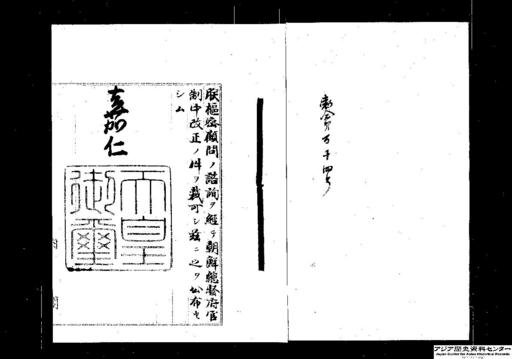 勅令第五十四号
朕枢密顧問ノ諮詢ヲ経テ朝鮮総督府官
制中改正ノ件ヲ裁可シ茲ニ之ヲ公布セ
シム
嘉仁
天皇
御璽
内閣
アジア歴史資料センター
Japan Center for Asian Historical Records